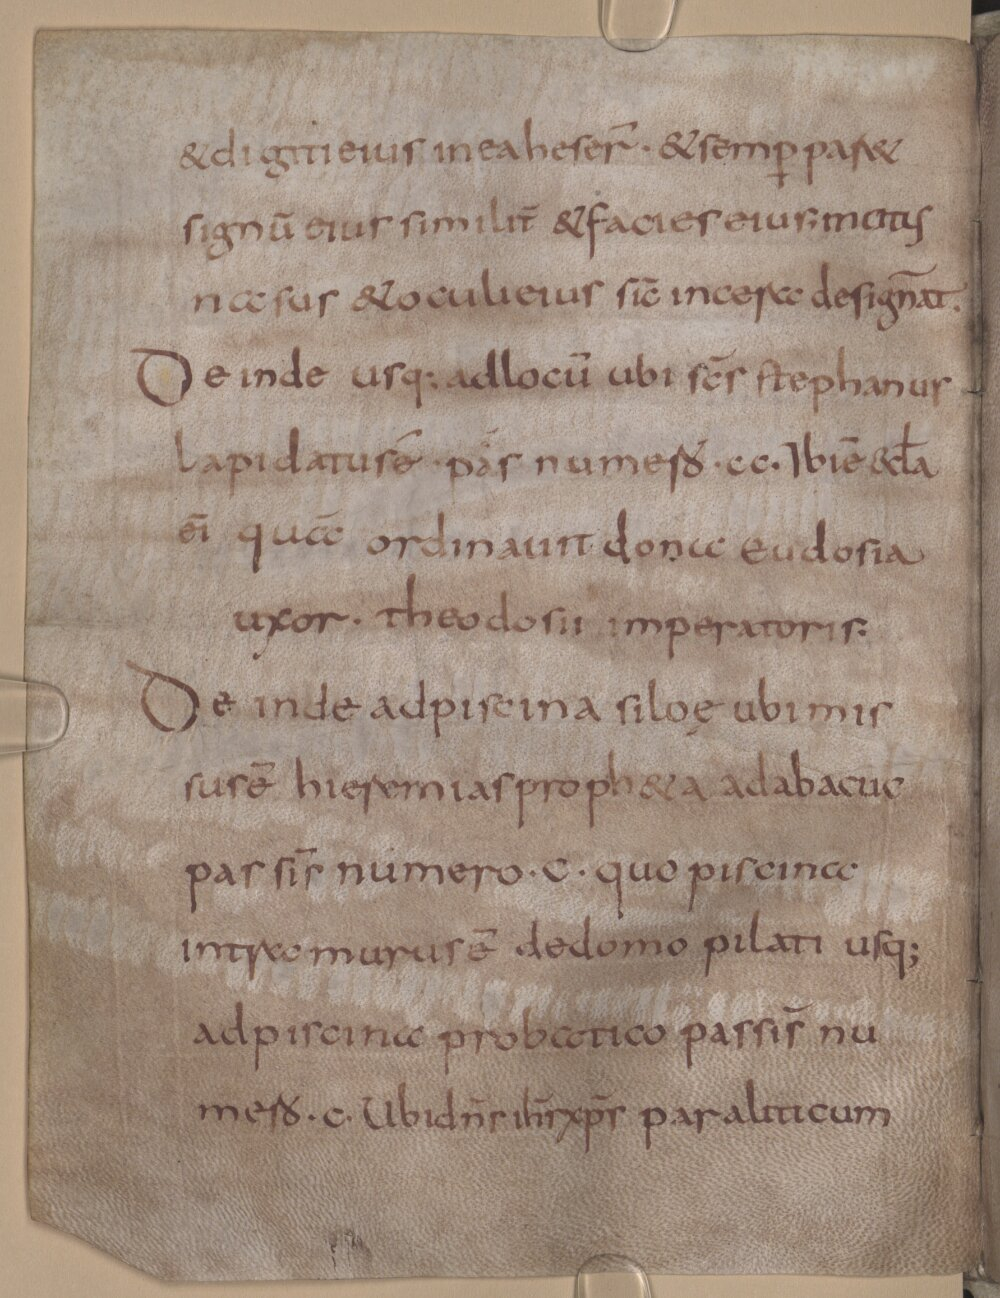 & digiti eius in ea heser̄ · & semꝑ par&
signū eius similit̄ & facies eius; mitis
nasus & oculi eius sic̄ in cera designat̄.
De inde usq; ad locū ubi sc̄s stephanus
lapidatus ē · pas̄ numerꝰ · cc · Ibi ē &cl̄a
ei quā ordinavit donna eudosia
uxor · theodosii imperatoris;
De inde ad piscina siloę ubi mis
sus ē hieremias proph&a ad abacuc
passis̄ numero · c · quo piscina
intra murus ē de domo pilati usq;
ad piscina probatico passis̄ nu
merꝰ · c · Ubi dn̄s ih̄s xp̄s paraliticum